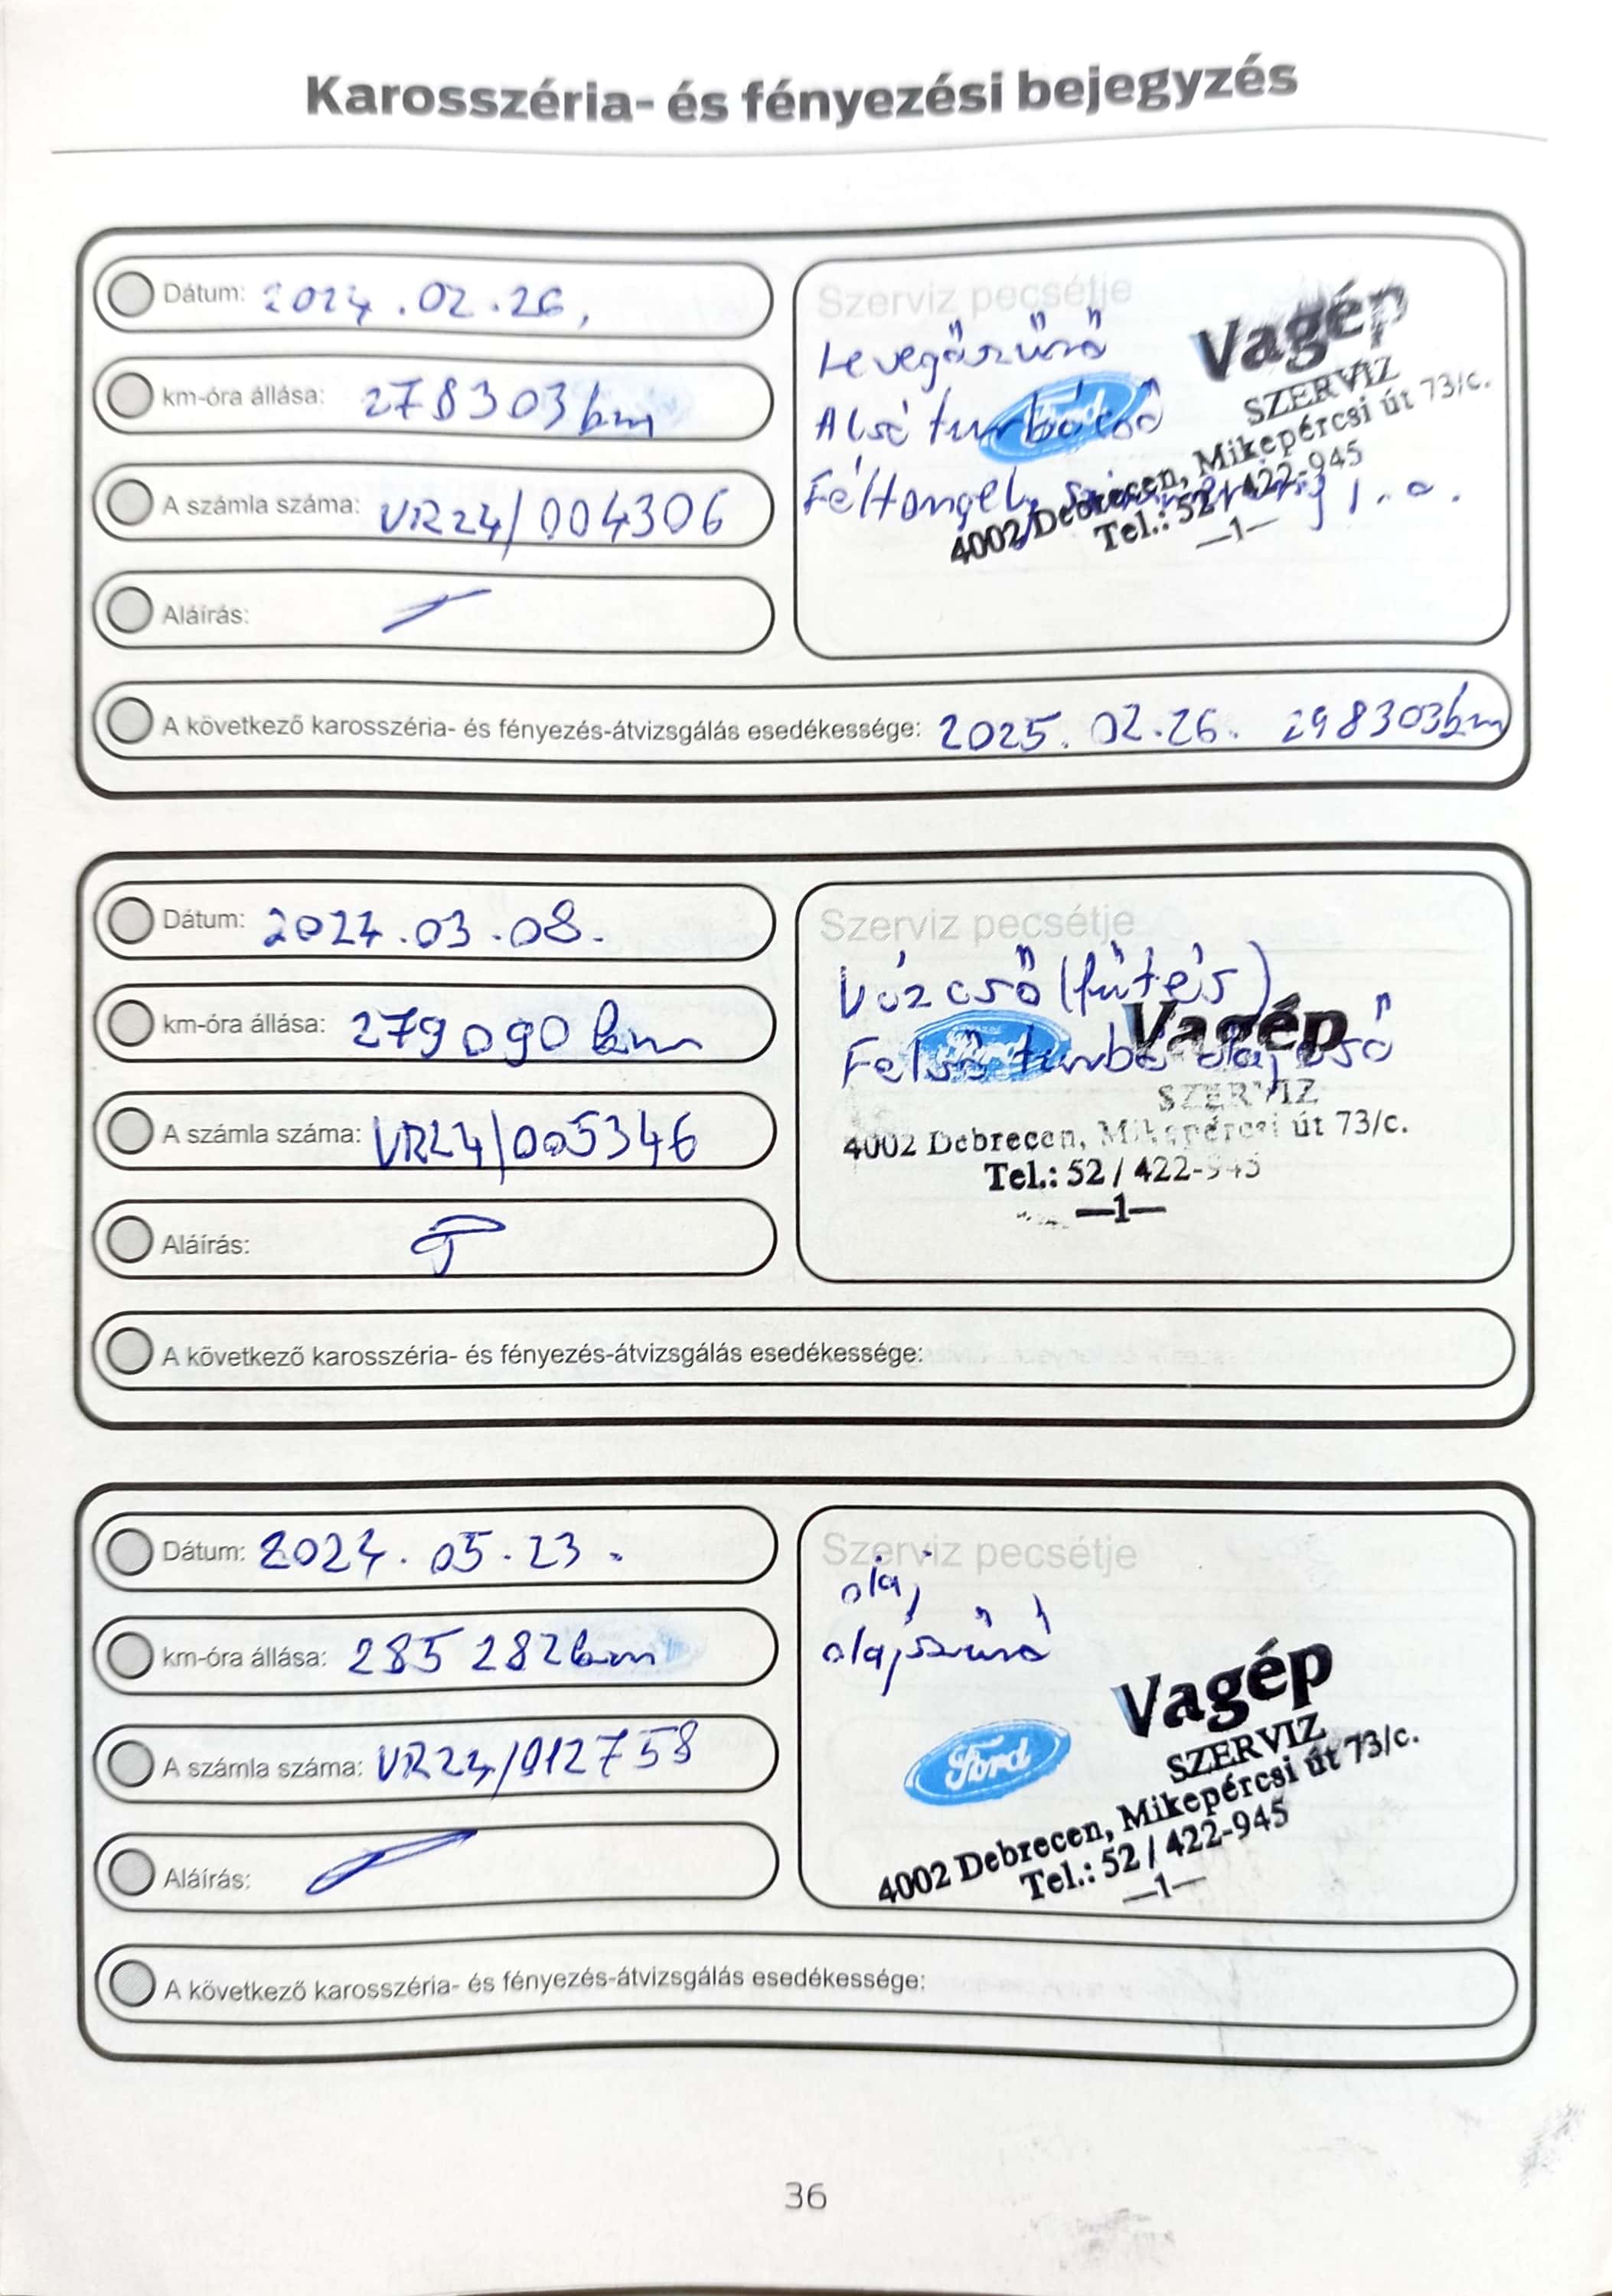 Karosszéria- és fényezési bejegyzés
Dátum: 2024.02.26.
km-óra állása: 278303km
A számla száma: VR24/004306
Aláírás:
Szerviz pecsétje
Levegőszűrő
Alsó turbócső
Féltengely j.o.
Ford
Vagép
SZERVIZ
4002 Debrecen, Mikepércsi út 73/c.
Tel.: 52/422-945
—1—
A következő karosszéria- és fényezés-átvizsgálás esedékessége: 2025.02.26. 298303km
Dátum: 2024.03.08.
km-óra állása: 279090 km
A számla száma: VR24/005346
Aláírás:
Szerviz pecsétje
Vízcső (fűtés)
Felső turbó olajcső
Ford
Vagép
SZERVIZ
4002 Debrecen, Mikepércsi út 73/c.
Tel.: 52 / 422-945
—1—
A következő karosszéria- és fényezés-átvizsgálás esedékessége:
Dátum: 2024.05.23.
km-óra állása: 285 282km
A számla száma: VR24/012758
Aláírás:
Szerviz pecsétje
olaj
olajszűrő
Ford
Vagép
SZERVIZ
4002 Debrecen, Mikepércsi út 73/c.
Tel.: 52 / 422-945
—1—
A következő karosszéria- és fényezés-átvizsgálás esedékessége:
36